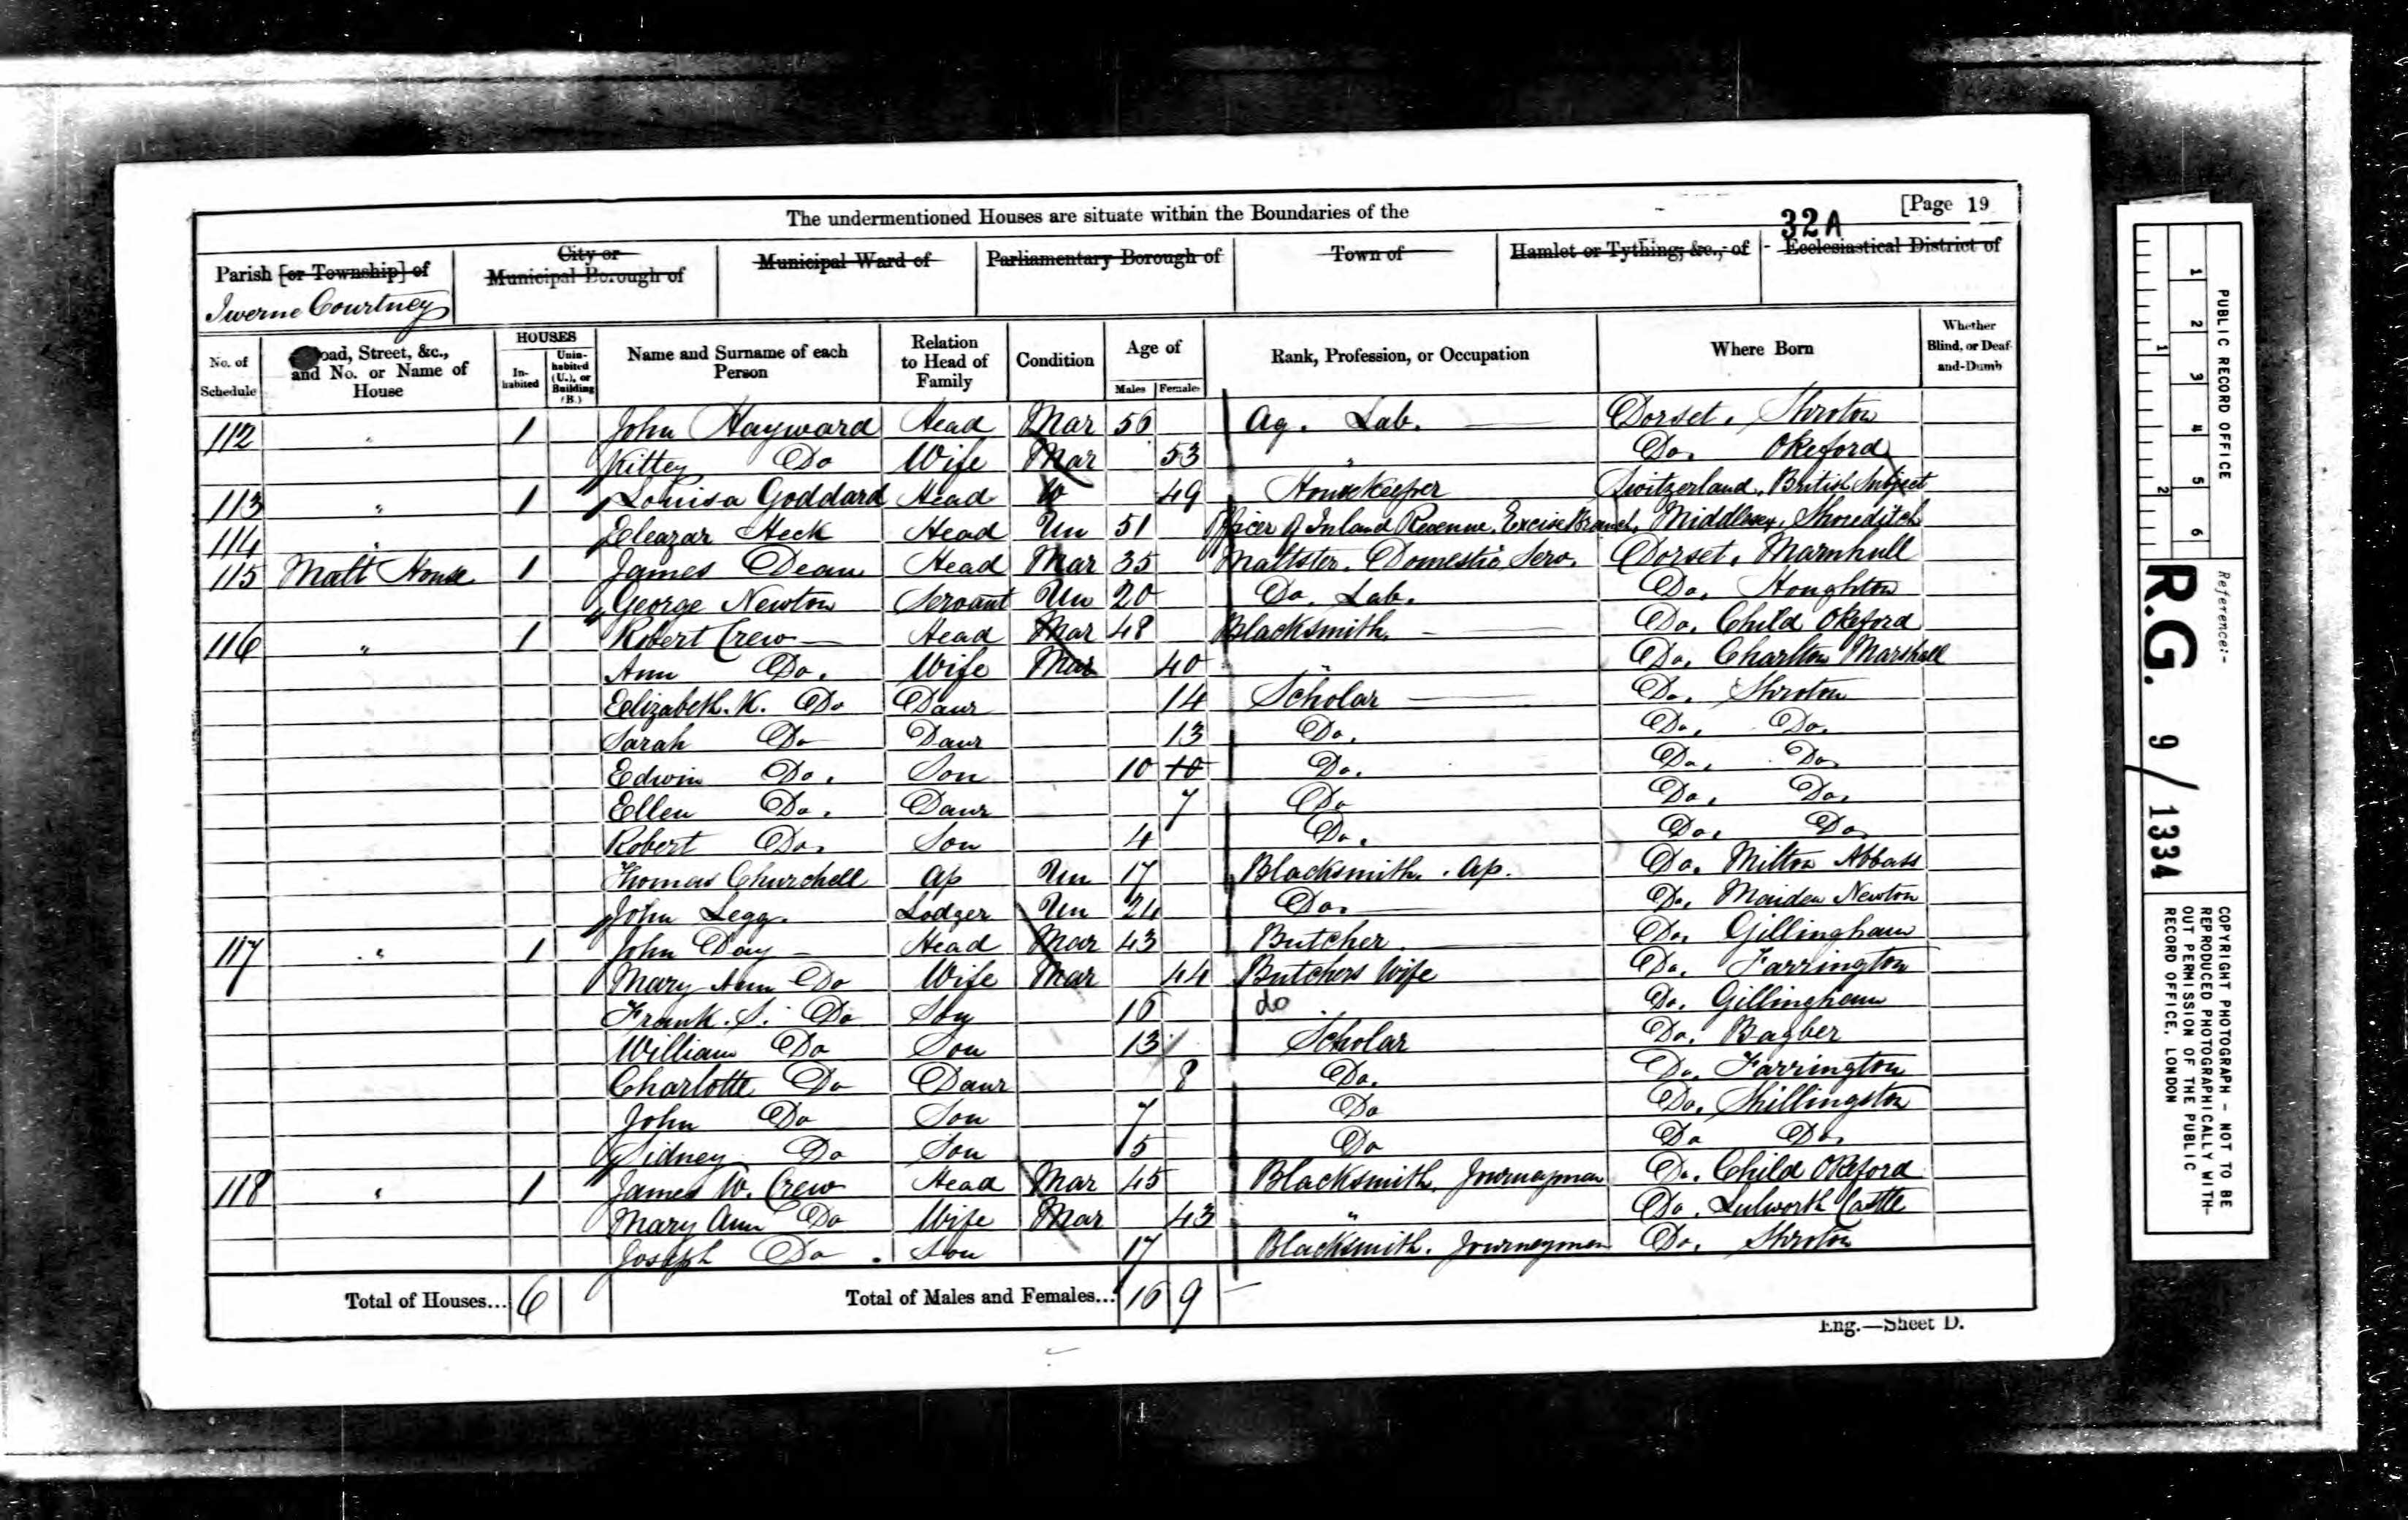 The undermentioned Houses are situate within the Boundaries of the
[Page 19
32A
Parish [or Township] of
City or Municipal Borough of
Municipal Ward of
Parliamentary Borough of
Town of
Hamlet or Tything, &c., of
Ecclesiastical District of
Iwerne Courtney
No. of Schedule
Road, Street, &c., and No. or Name of House
HOUSES
In-habited
Unin-habited (U.), or Building (B.)
Name and Surname of each Person
Relation to Head of Family
Condition
Age of
Males Females
Rank, Profession, or Occupation
Where Born
Whether Blind, or Deaf-and-Dumb
112 " 1 John Hayward Head Mar 56 Ag. Lab. Dorset, Shroton
Kittey Do Wife Mar 53 " Do. Okeford
113 " 1 Louisa Goddard Head W 49 Housekeeper Switzerland, British Subject
114 " Eleazar Heck Head Un 51 Officer of Inland Revenue, Excise Branch, Middlesex, Shoreditch
115 Malt House 1 James Dean Head Mar 35 Maltster. Domestic Serv. Dorset, Marnhull
George Newton Servant Un 20 Do. Lab. Do. Houghton
116 " 1 Robert Crew Head Mar 48 Blacksmith. Do. Child Okeford
Ann Do. Wife Mar 40 " Do. Charlton Marshall
Elizabeth. K. Do Daur 14 Scholar Do. Shroton
Sarah Do Daur 13 Do. Do. Do.
Edwin Do. Son 10 10 Do. Do. Do.
Ellen Do. Daur 7 Do Do. Do.
Robert Do. Son 4 Do. Do. Do.
Thomas Churchell Ap Un 17 Blacksmith. Ap. Do. Milton Abbass
John Legg. Lodger Un 24 Do. Do. Maiden Newton
117 " 1 John Day Head Mar 43 Butcher. Do. Gillingham
Mary Ann Do Wife Mar 44 Butchers Wife Do. Farrington
Frank. S. Do Son 16 do Do. Gillingham
William Do Son 13 Scholar Do. Bagber
Charlotte Do Daur 8 Do. Do. Farrington
John Do Son 7 Do Do. Shillingston
Sidney Do Son 5 Do Do Do.
118 " 1 James W. Crew Head Mar 45 Blacksmith. Journeyman Do. Child Okeford
Mary Ann Do Wife Mar 43 " Do. Lulworth Castle
Joseph Do. Son 17 Blacksmith. Journeyman Do. Shroton
Total of Houses... 6
Total of Males and Females... 16 9
Eng.—Sheet D.
PUBLIC RECORD OFFICE
1 2 3 4 5 6
1 2
Reference:-
R.G. 9/1334
COPYRIGHT PHOTOGRAPH - NOT TO BE
REPRODUCED PHOTOGRAPHICALLY WITH-
OUT PERMISSION OF THE PUBLIC
RECORD OFFICE, LONDON